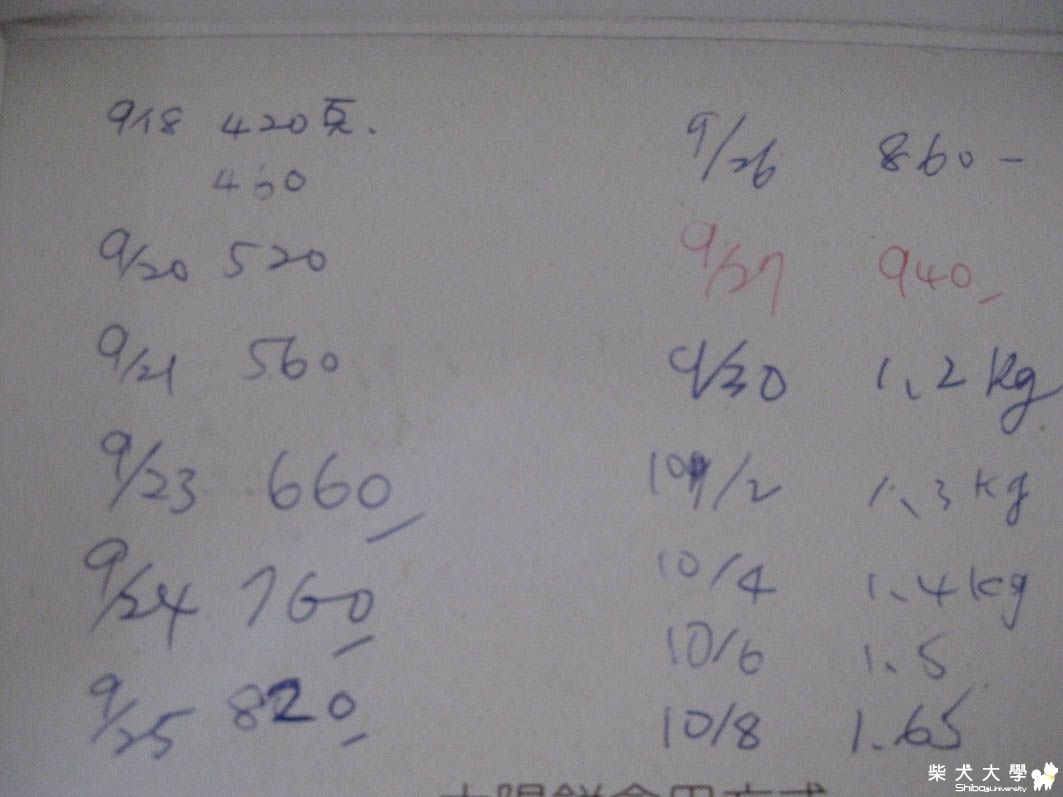 9/8 420克.
460
9/20 520
9/21 560
9/23 660
9/24 760
9/25 820
9/26 860-
9/27 940
9/30 1.2kg
10/2 1.3kg
10/4 1.4kg
10/6 1.5
10/8 1.65
太陽餅食用方式
柴犬大學
Shiba@University